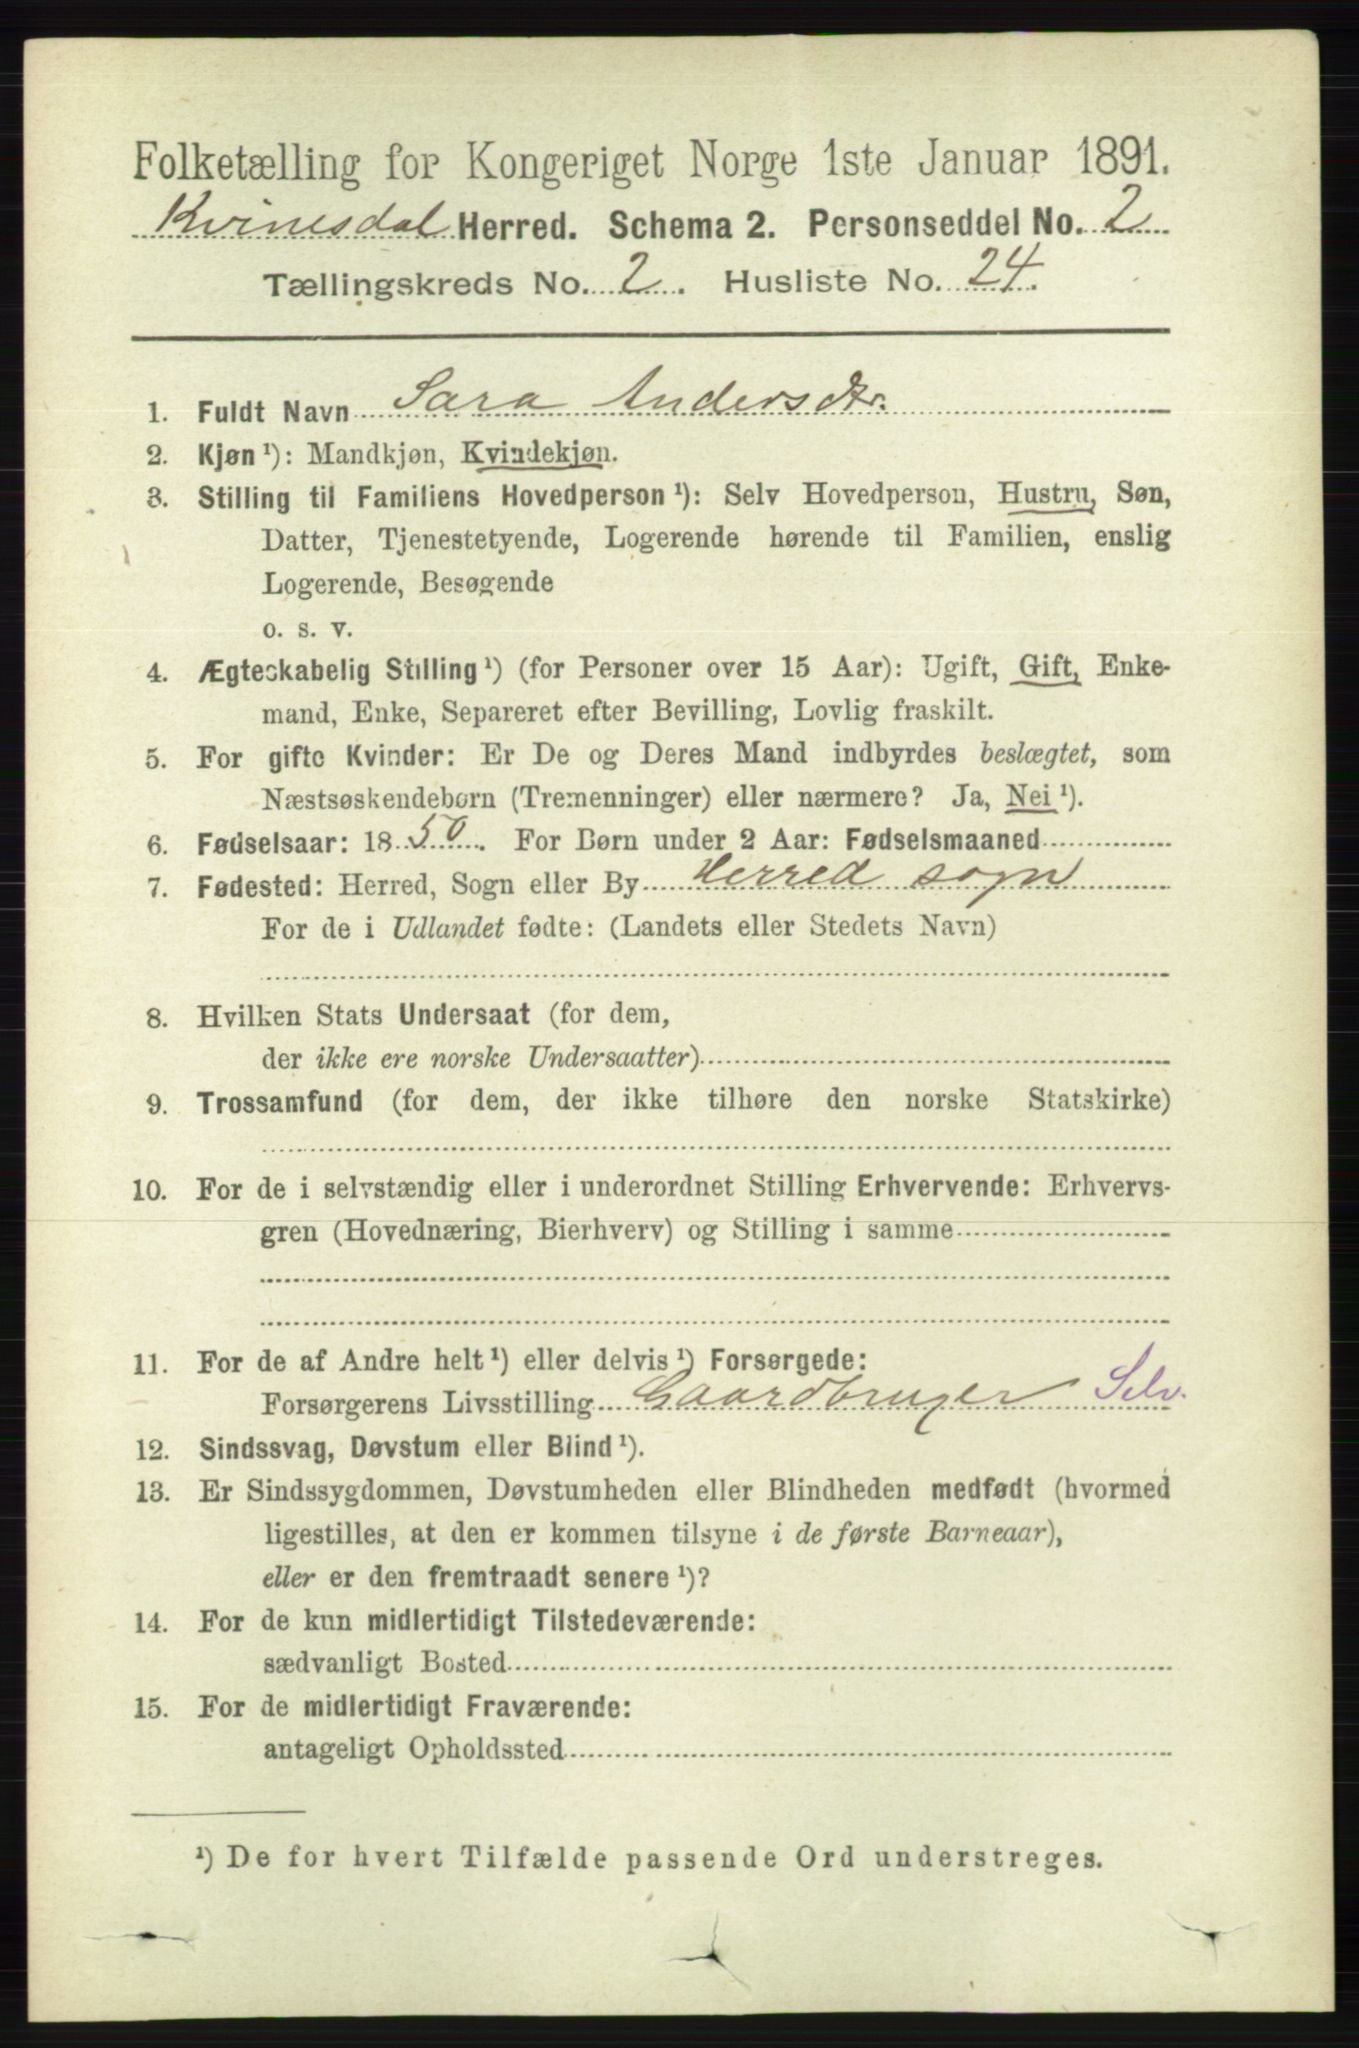 Folketælling for Kongeriget Norge 1ste Januar 1891.
Kvinesdal Herred. Schema 2. Personseddel No. 2
Tællingskreds No. 2. Husliste No. 24.
1. Fuldt Navn Sara Andersdtr.
2. Kjøn ¹): Mandkjøn, Kvindekjøn.
3. Stilling til Familiens Hovedperson ¹): Selv Hovedperson, Hustru, Søn,
Datter, Tjenestetyende, Logerende hørende til Familien, enslig
Logerende, Besøgende
o. s. v.
4. Ægteskabelig Stilling ¹) (for Personer over 15 Aar): Ugift, Gift, Enke-
mand, Enke, Separeret efter Bevilling, Lovlig fraskilt.
5. For gifte Kvinder: Er De og Deres Mand indbyrdes beslægtet, som
Næstsøskendebørn (Tremenninger) eller nærmere? Ja, Nei ¹).
6. Fødselsaar: 1850. For Børn under 2 Aar: Fødselsmaaned
7. Fødested: Herred, Sogn eller By Herred sogn
For de i Udlandet fødte: (Landets eller Stedets Navn)
8. Hvilken Stats Undersaat (for dem,
der ikke ere norske Undersaatter)
9. Trossamfund (for dem, der ikke tilhøre den norske Statskirke)
10. For de i selvstændig eller i underordnet Stilling Erhvervende: Erhvervs-
gren (Hovednæring, Bierhverv) og Stilling i samme
11. For de af Andre helt ¹) eller delvis ¹) Forsørgede:
Forsørgerens Livsstilling Gaardbruger Selv.
12. Sindssvag, Døvstum eller Blind ¹).
13. Er Sindssygdommen, Døvstumheden eller Blindheden medfødt (hvormed
ligestilles, at den er kommen tilsyne i de første Barneaar),
eller er den fremtraadt senere ¹)?
14. For de kun midlertidigt Tilstedeværende:
sædvanligt Bosted
15. For de midlertidigt Fraværende:
antageligt Opholdssted
¹) De for hvert Tilfælde passende Ord understreges.